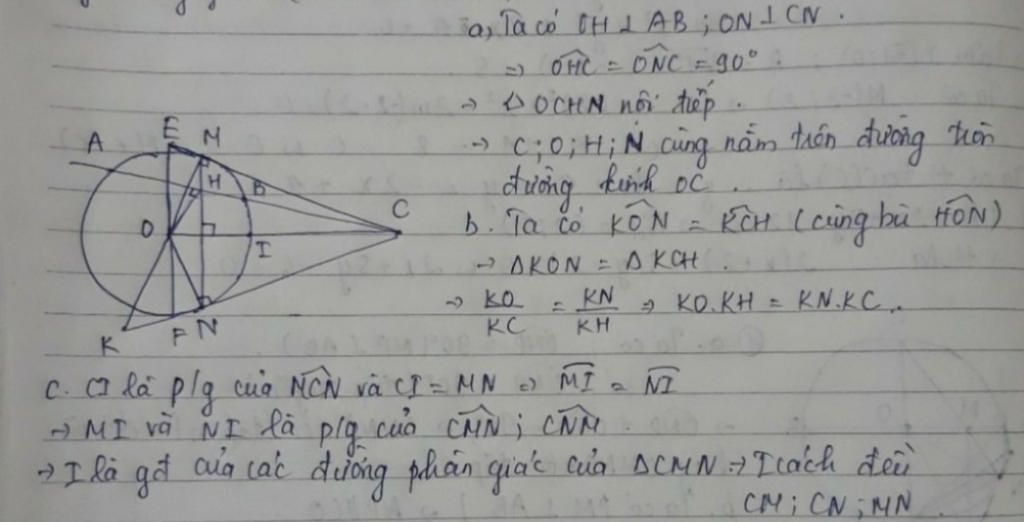 a, Ta có OH ⊥ AB ; ON ⊥ CN .
=> OHC = ONC = 90° .
-> ◁ OCHN nối tiếp .
-> C ; O ; H ; N cùng nằm trên đường tròn
đường kính OC .
b. Ta có KON = KCH (cùng bù HON)
-> ΔKON = ΔKCH .
-> KO/KC = KN/KH => KO.KH = KN.KC .
A E M H B C O I K F N
c. CI là p/g của MCN và CI = MN => MI = NI
-> MI và NI là p/g của CMN ; CNM .
-> I là gđ của các đường phân giác của ΔCMN -> I cách đều
CM ; CN ; MN